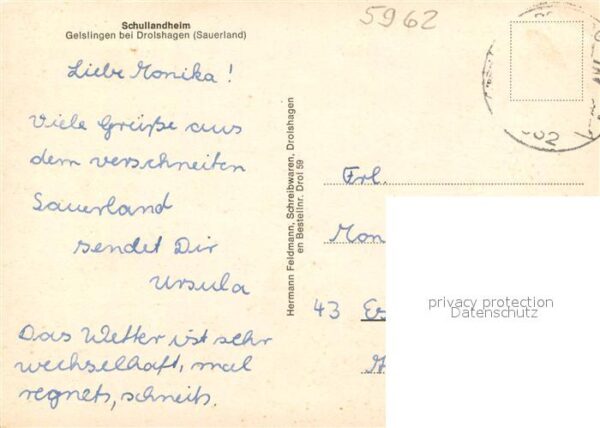 Schullandheim
Gelslingen bei Drolshagen (Sauerland)
5962
Liebe Monika!
Viele Grüße aus
dem verschneiten
Sauerland
sendet Dir
Ursula
Das Wetter ist sehr
wechselhaft, mal
regnets, schneits.
Hermann Feldmann, Schreibwaren, Drolshagen
en Bestellnr. Drol 59
Frl.
Mon
43 Es
privacy protection
Datenschutz